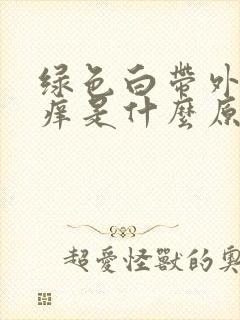 绿色白帶外
痒是什麼原
超愛怪獸的奧